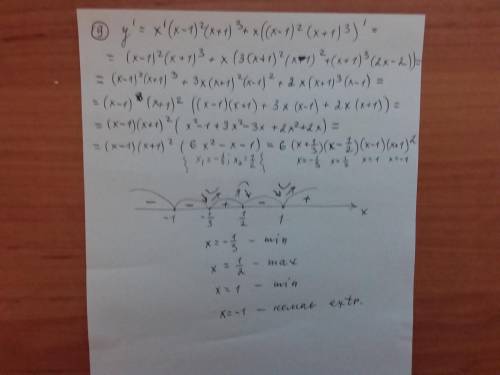 9) y' = x'(x-1)²(x+1)³ + x((x-1)²(x+1)³)' =
= (x-1)²(x+1)³ + x(3(x+1)²(x-1)² + (x+1)³(2x-2)) =
= (x-1)²(x+1)³ + 3x(x+1)²(x-1)² + 2x(x+1)³(x-1) =
= (x-1)(x+1)²((x-1)(x+1) + 3x(x-1) + 2x(x+1)) =
= (x-1)(x+1)²(x²-1+3x²-3x+2x²+2x) =
= (x-1)(x+1)²(6x²-x-1) = 6(x+1/3)(x-1/2)(x-1)(x+1)²
{x₁=-1/3; x₂=1/2} x=-1/3 x=1/2 x=1 x=-1
- - + - +
-1 -1/3 1/2 1 x
x = -1/3 - min
x = 1/2 - max
x = 1 - min
x = -1 - немає extr.